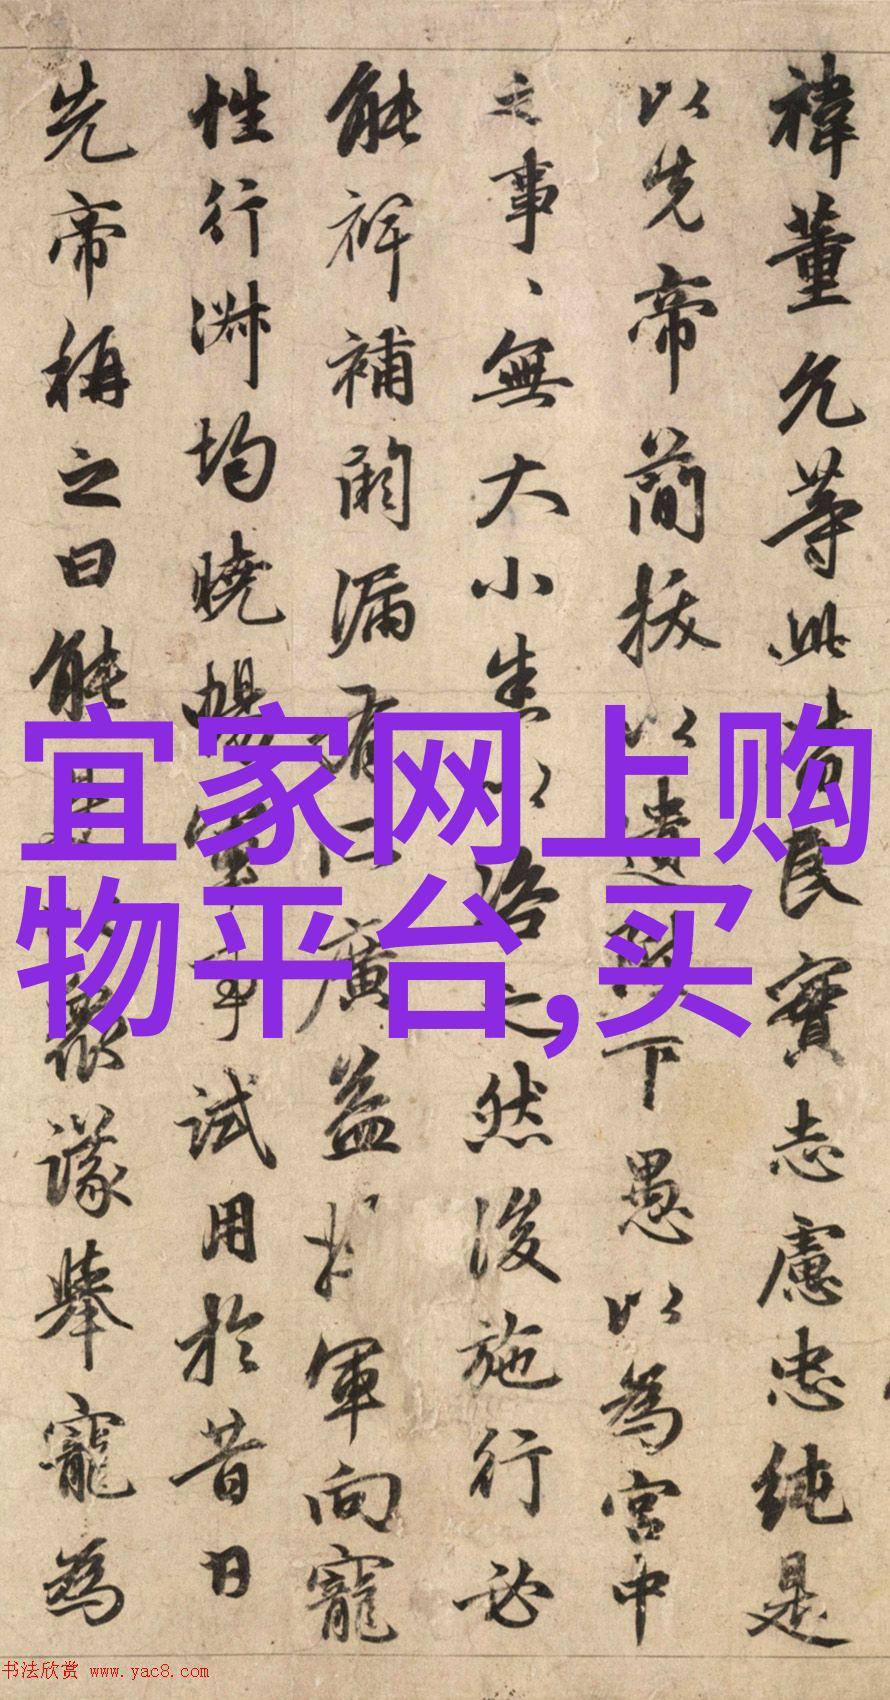 禕董允等此皆良實志慮忠純是
以先帝簡拔以遺陛下愚以為宮中
之事、無大小悉以咨之然後施行必
能裨補闕漏有所廣益將軍向寵
性行淑均曉暢軍事試用於昔日
先帝稱之曰能是以眾議舉寵為
宜家网上购
物平台,买
书法欣赏 www.yac8.com